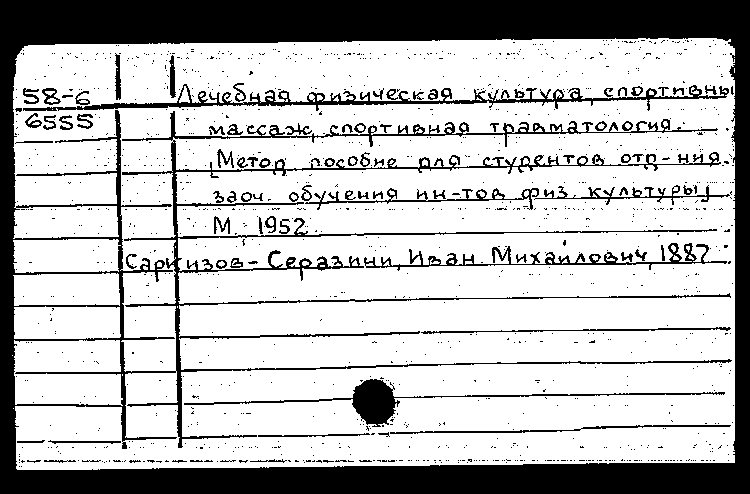 58-6
6555
Лечебная физическая культура, спортивны
массаж, спортивная травматология.
[Метод. пособие для студентов отд-ния
заоч. обучения ин-тов физ. культуры]
М. 1952
Саркизов-Серазини, Иван Михайлович, 1887